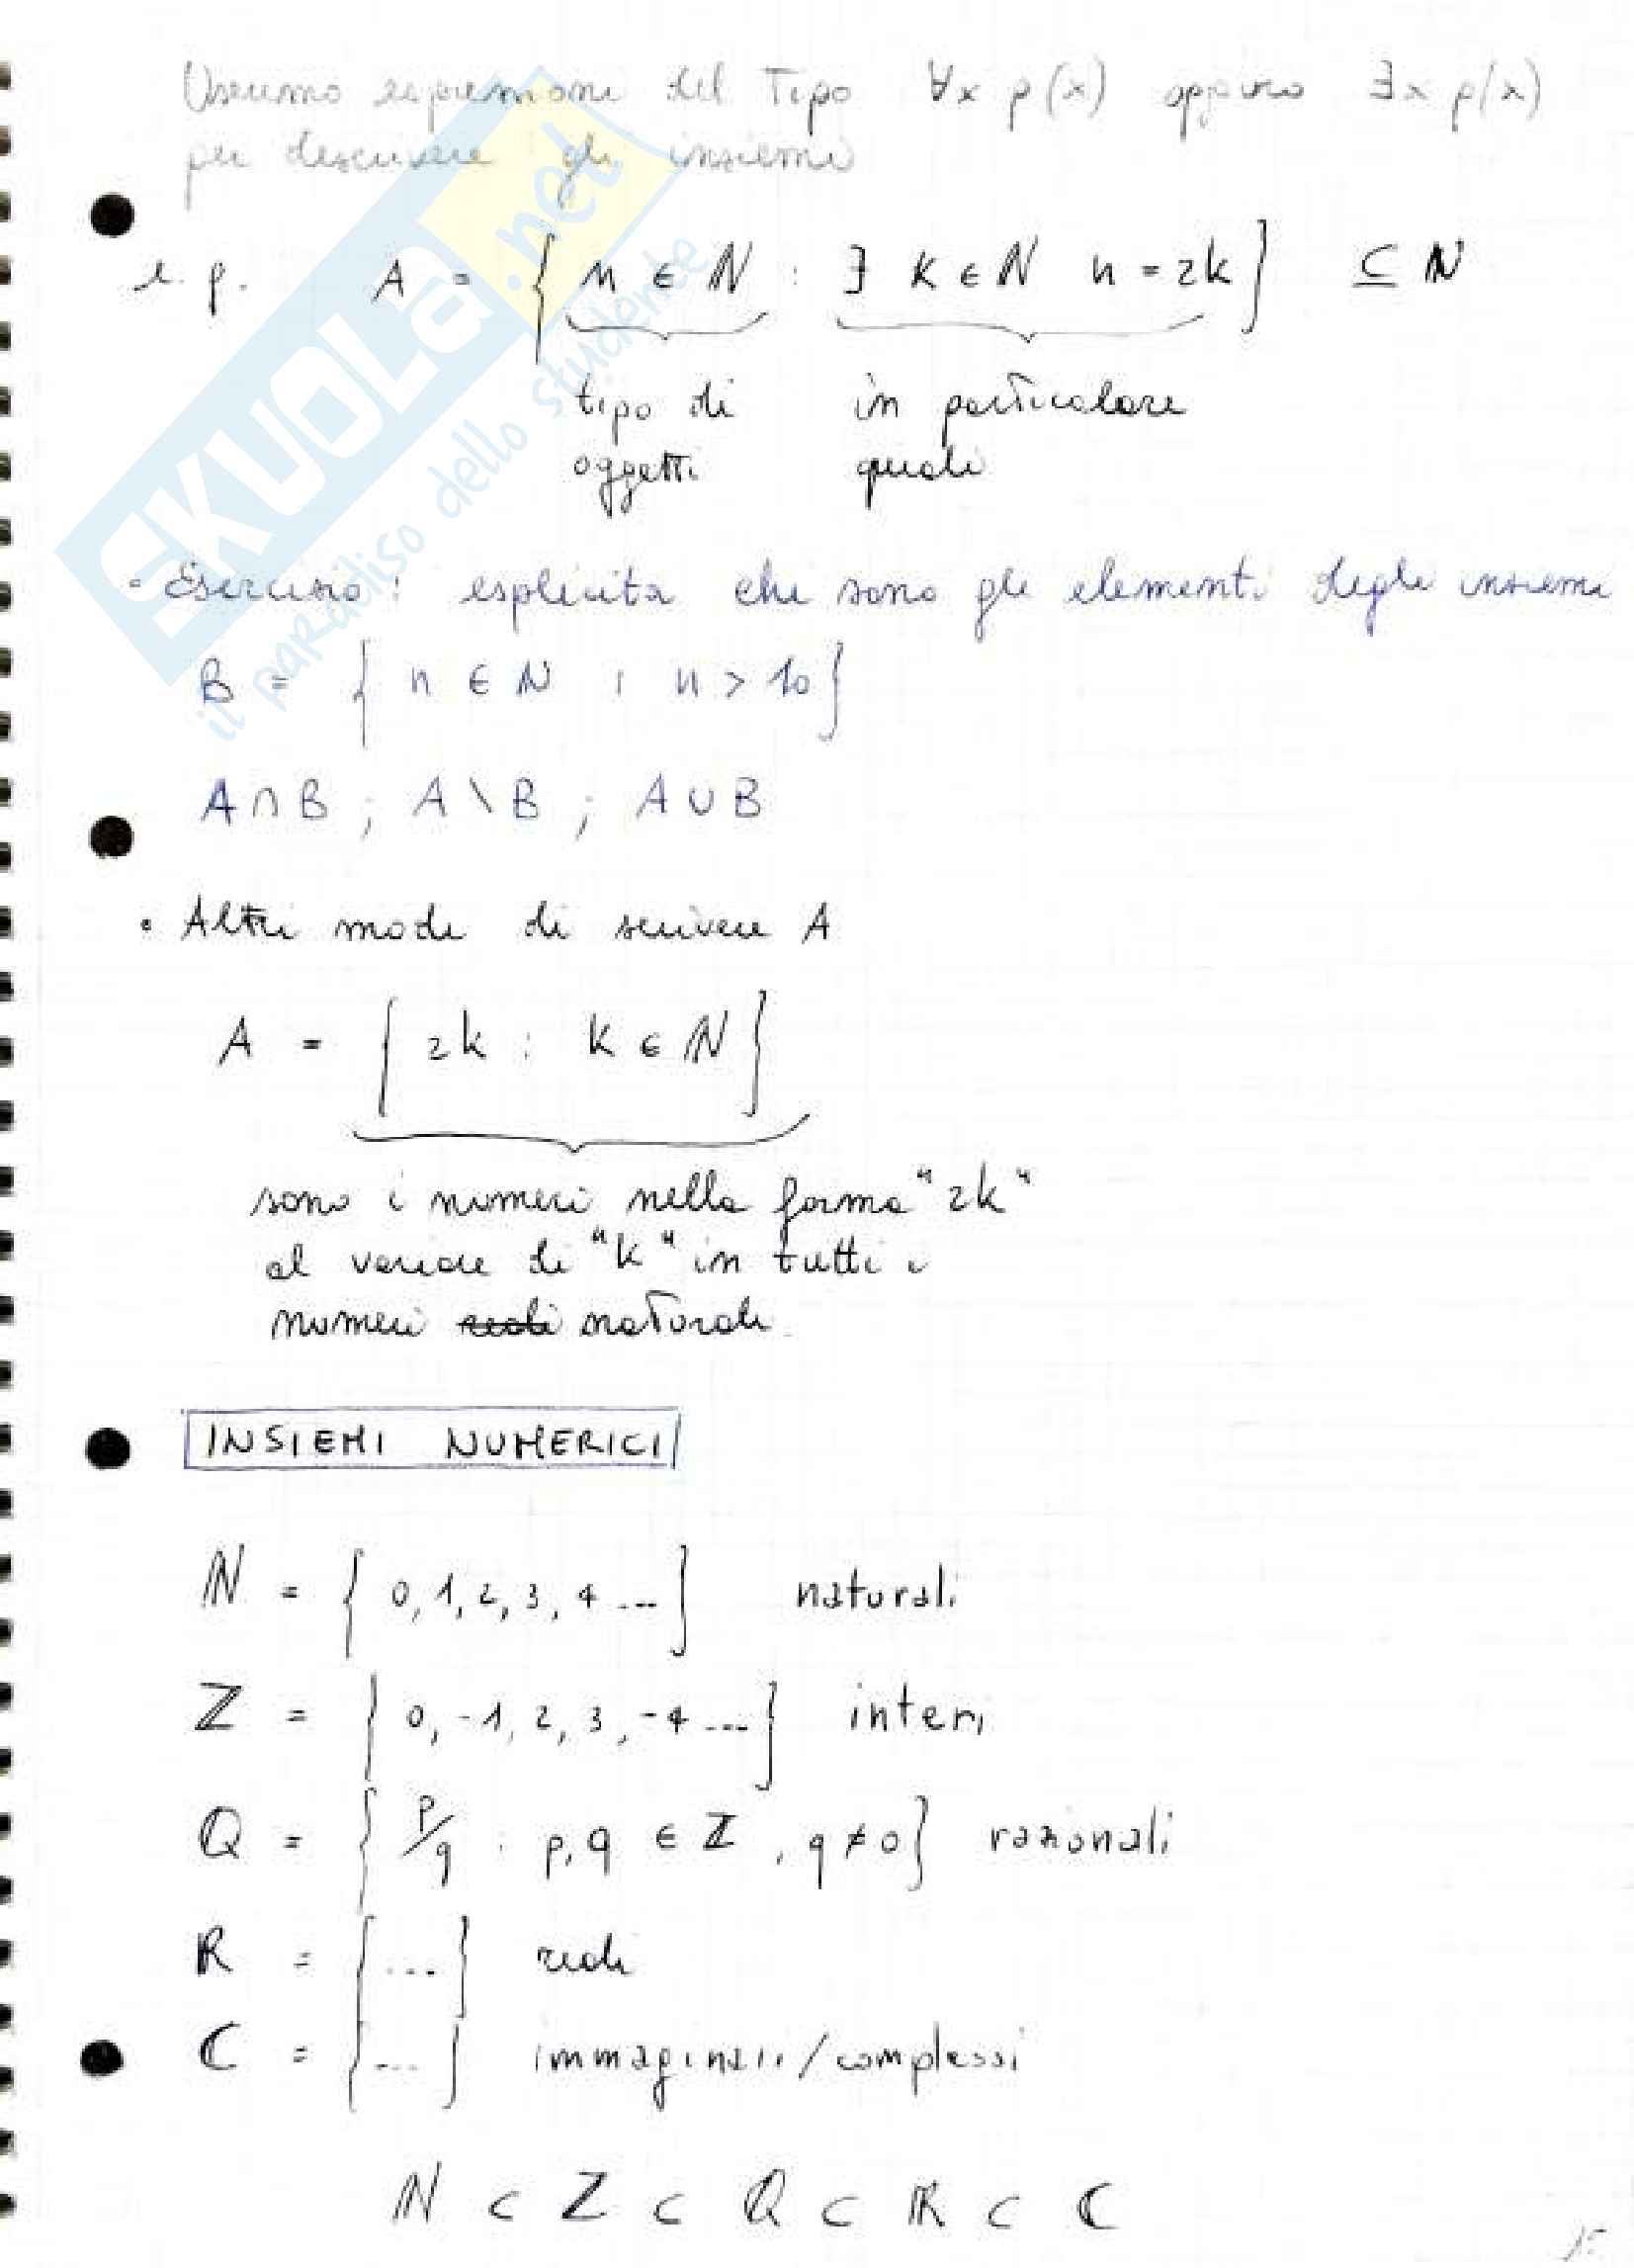 Useremo espressioni del tipo ∀x p(x) oppure ∃x p(x)
per descrivere gli insiemi
e.g. A = { n ∈ ℕ : ∃ k ∈ ℕ n = 2k } ⊆ ℕ
tipo di in particolare
oggetti quali
• Esercizio: esplicita chi sono gli elementi degli insiemi
B = { n ∈ ℕ : n > 10 }
A ∩ B ; A \ B ; A ∪ B
• Altri modi di scrivere A
A = { 2k : k ∈ ℕ }
sono i numeri nella forma "2k"
al variare di "k" in tutti i
numeri reali naturali
INSIEMI NUMERICI
ℕ = { 0, 1, 2, 3, 4 ... } naturali
ℤ = { 0, -1, 2, 3, -4 ... } interi
ℚ = { p/q : p, q ∈ ℤ, q ≠ 0 } razionali
ℝ = { ... } reali
ℂ = { ... } immaginari/complessi
ℕ ⊂ ℤ ⊂ ℚ ⊂ ℝ ⊂ ℂ
SKUOLA.net
il paradiso dello studente